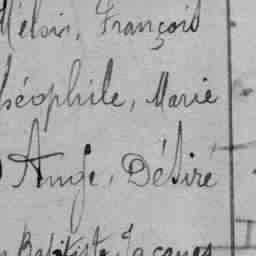 Méloir, François
héophile, Marie
Ange, Désiré
Baptiste, Jacques